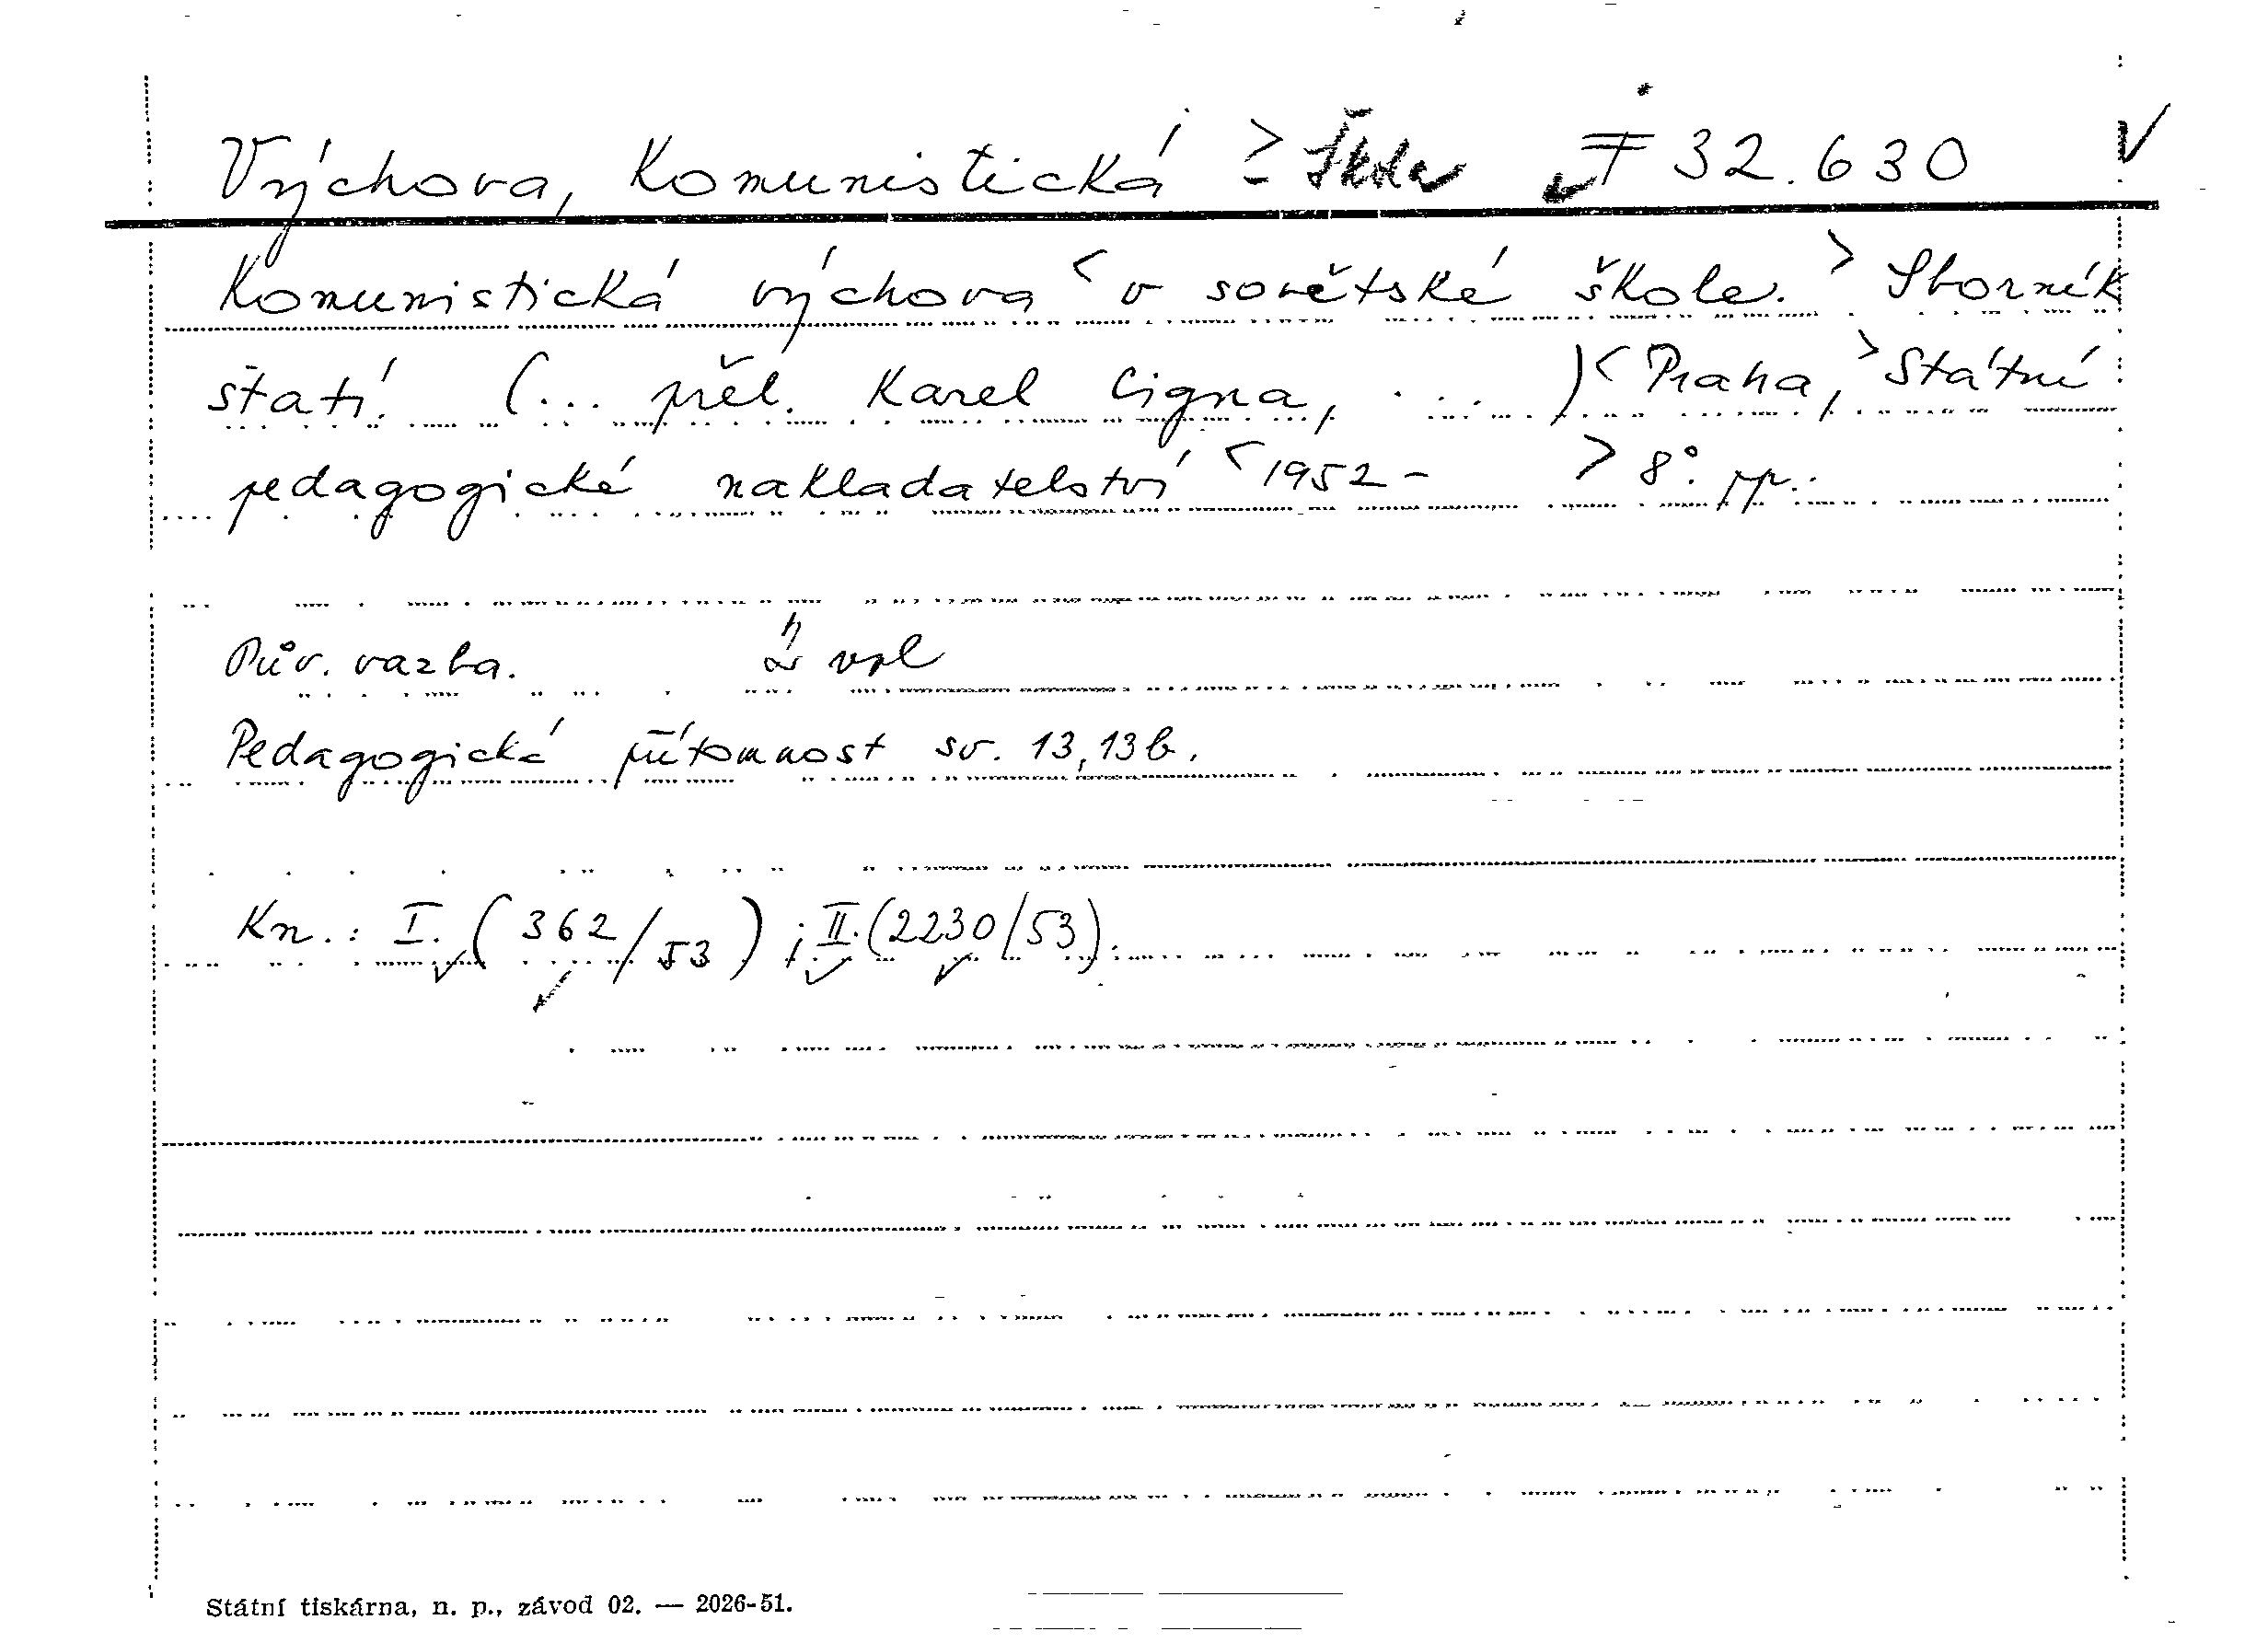 Výchova, Komunistická > - Škola F 32.630 V
Komunistická výchova < v sovětské škole. > Sborník
statí. (... přel. Karel Cigna, ....) < Praha, > Státní
pedagogické nakladatelství < 1952 - > 8°. pp.
Pův. vazba.
Pedagogická přítomnost sv. 13, 13b.
Kn.: I. (362/53); II. (2230/53).
Státní tiskárna, n. p., závod 02. — 2026-51.